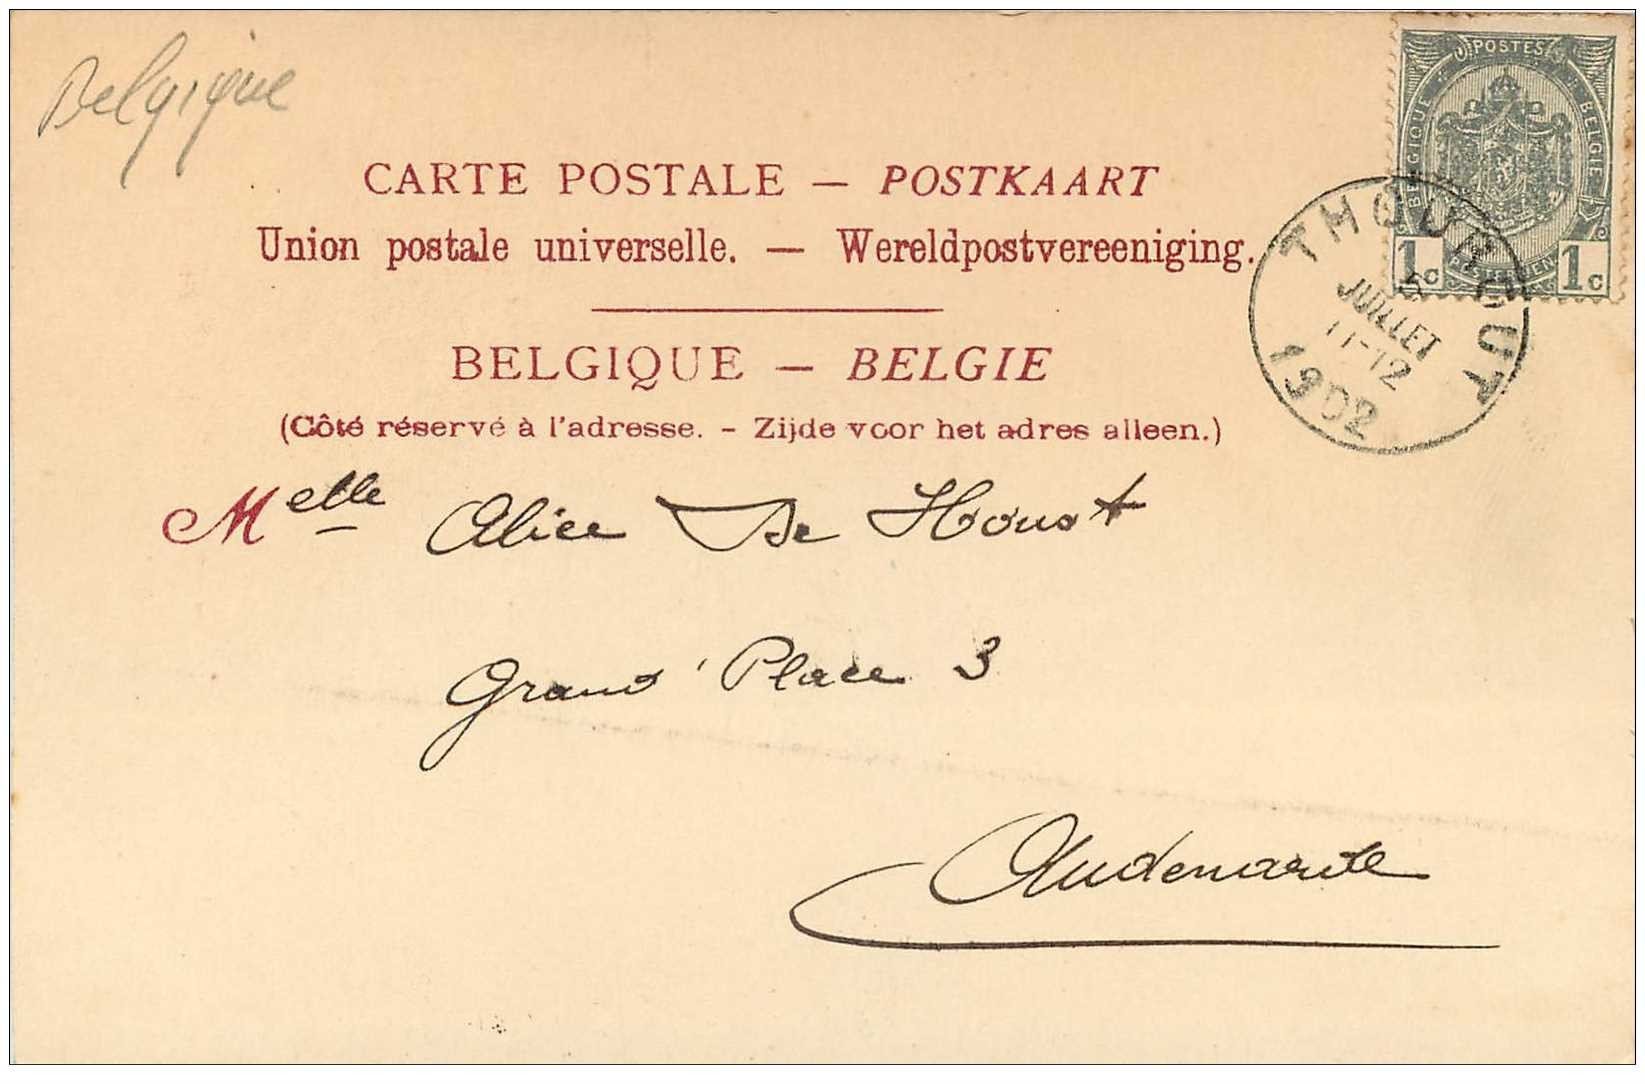 Belgique
POSTES
BELGIQUE
BELGIE
POSTERIJEN
1c 1c
CARTE POSTALE — POSTKAART
Union postale universelle. — Wereldpostvereeniging.
THOUROUT
5
JUILLET
11-12
1902
BELGIQUE — BELGIE
(Côté réservé à l'adresse. - Zijde voor het adres alleen.)
Melle Alice De Houst
Grand' Place 3
Audenarde